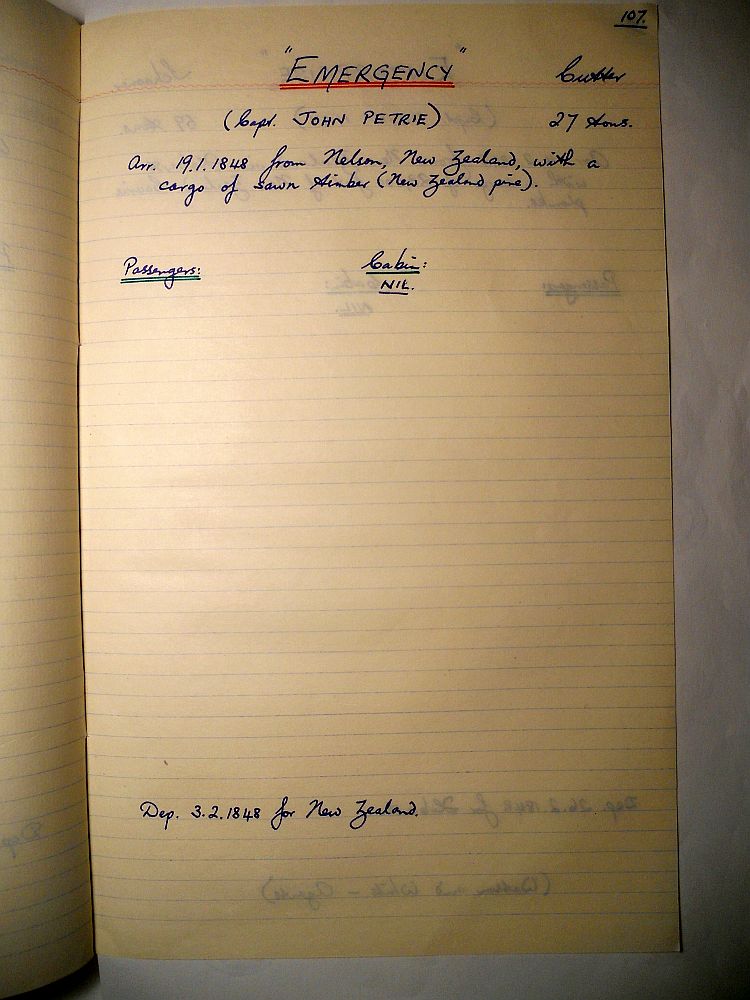 107.
"EMERGENCY" Cutter
(Capt. JOHN PETRIE) 27 tons.
Arr. 19.1.1848 from Nelson, New Zealand, with a
cargo of sawn timber (New Zealand pine).
Passengers: Cabin:
NIL.
Dep. 3.2.1848 for New Zealand.